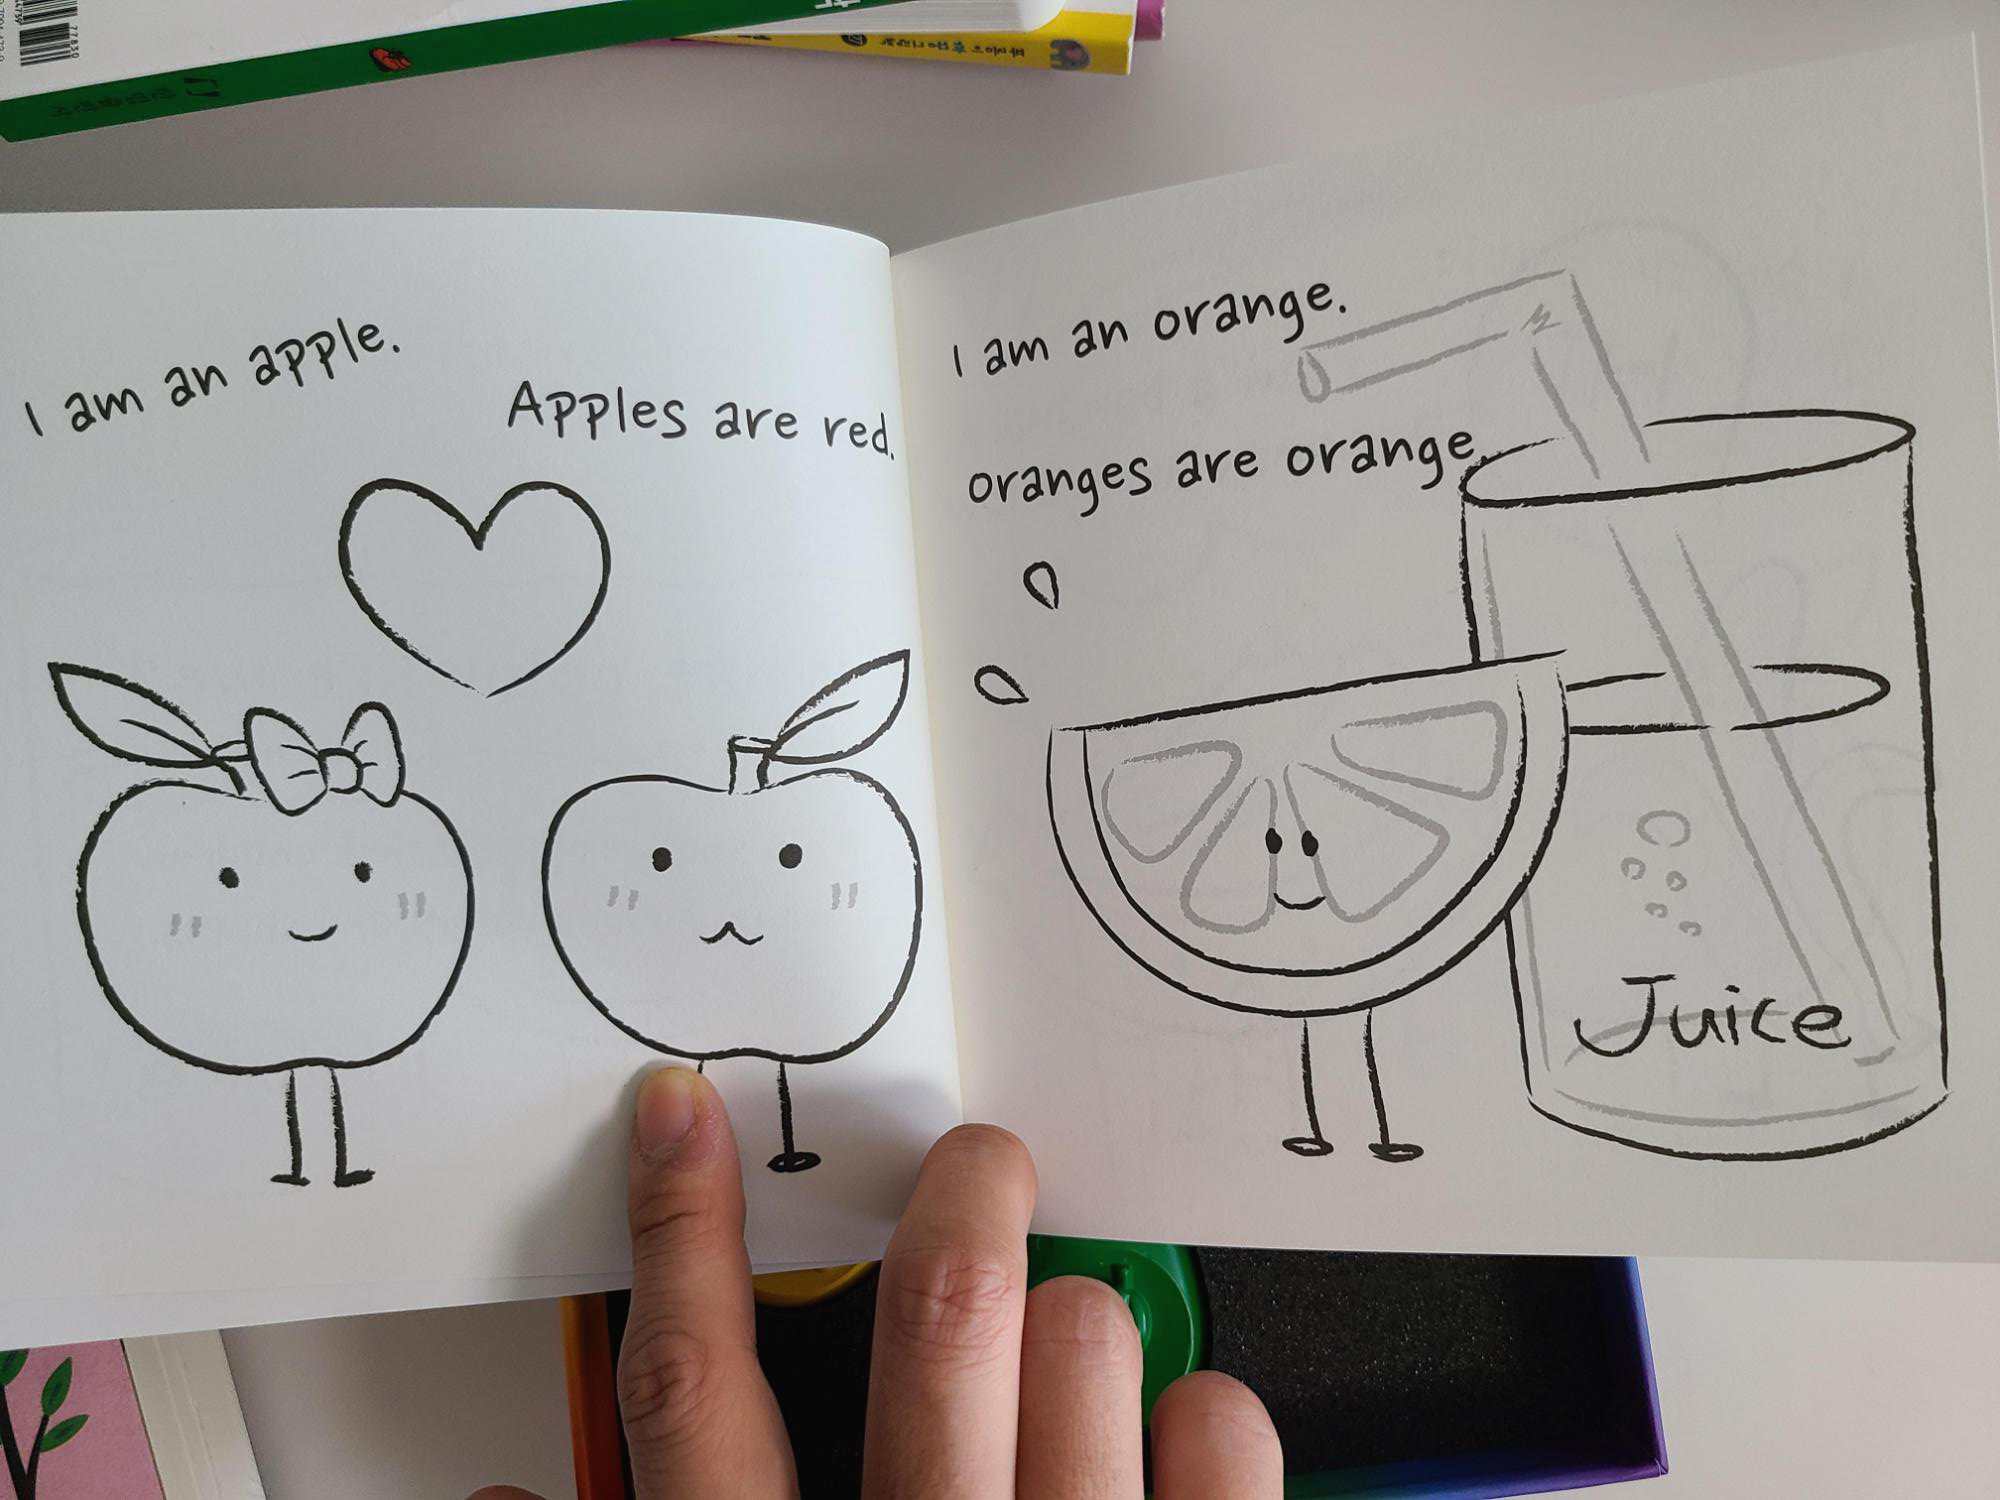 I am an apple.
Apples are red.
I am an orange.
oranges are orange.
Juice
77830